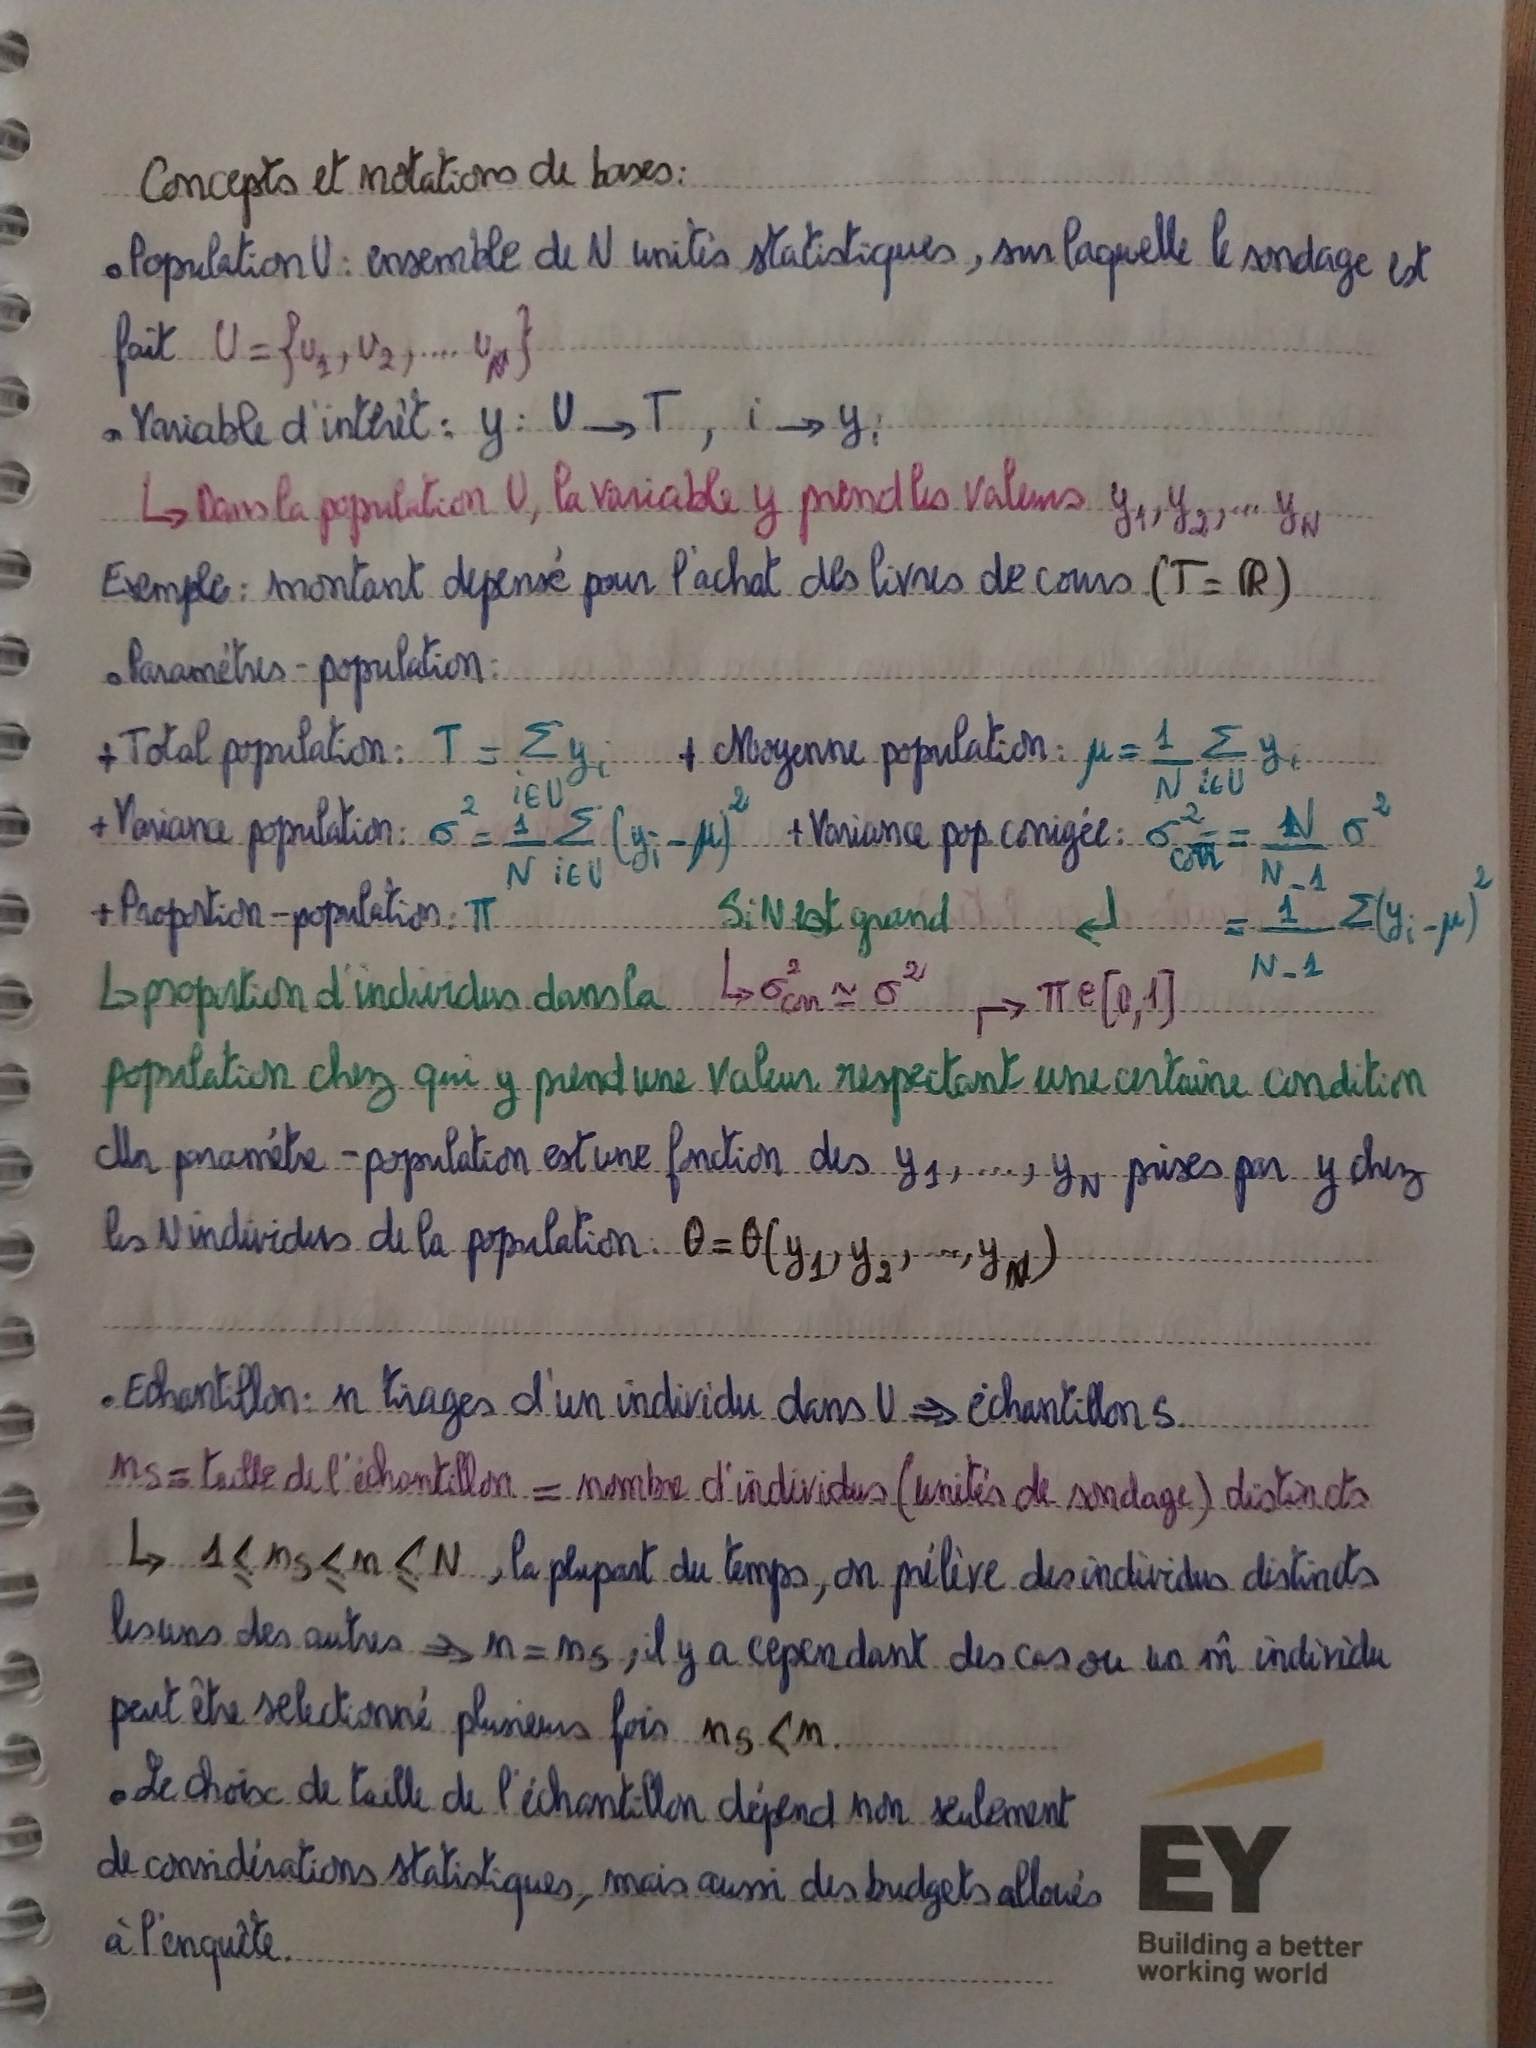 Concepts et notations de bases:
• Population U: ensemble de N unités statistiques, sur laquelle le sondage est
fait U = {u₁, u₂, .... u_N}
• Variable d'intérêt: y: U → T, i → yᵢ
↳ Dans la population U, la variable y prend les valeurs y₁, y₂, ... y_N
Exemple: montant depensé pour l'achat des livres de cours (T = ℝ)
• Paramétres-population:
+ Total population: T = Σ_{i∈U} yᵢ + Moyenne population: μ = 1/N Σ_{i∈U} yᵢ
+ Variance population: σ² = 1/N Σ_{i∈U} (yᵢ - μ)² + Variance pop corrigée: σ²_corr = N/(N-1) σ²
+ Proportion-population: π Si N est grand ↲ = 1/(N-1) Σ(yᵢ - μ)²
↳ proportion d'individus dans la ↳ σ²_corr ≃ σ² ↱ π ∈ [0,1]
population chez qui y prend une valeur respectant une certaine condition
Un paramétre-population est une fonction des y₁, ..., y_N prises par y chez
les N individus de la population: θ = θ(y₁, y₂, ..., y_N)
• Echantillon: n tirages d'un individu dans U ⇒ échantillon s.
n_s = taille de l'échantillon = nombre d'individus (unités de sondage) distincts
↳ 1 ≤ n_s ≤ n ≤ N, la plupart du temps, on prélève des individus distincts
les uns des autres ⇒ n = n_s, il y a cependant des cas ou un m̂ individu
peut être selectionné plusieurs fois n_s < n.
• Le choix de taille de l'échantillon dépend non seulement
de considérations statistiques, mais aussi des budgets alloués
à l'enquête.
EY
Building a better
working world